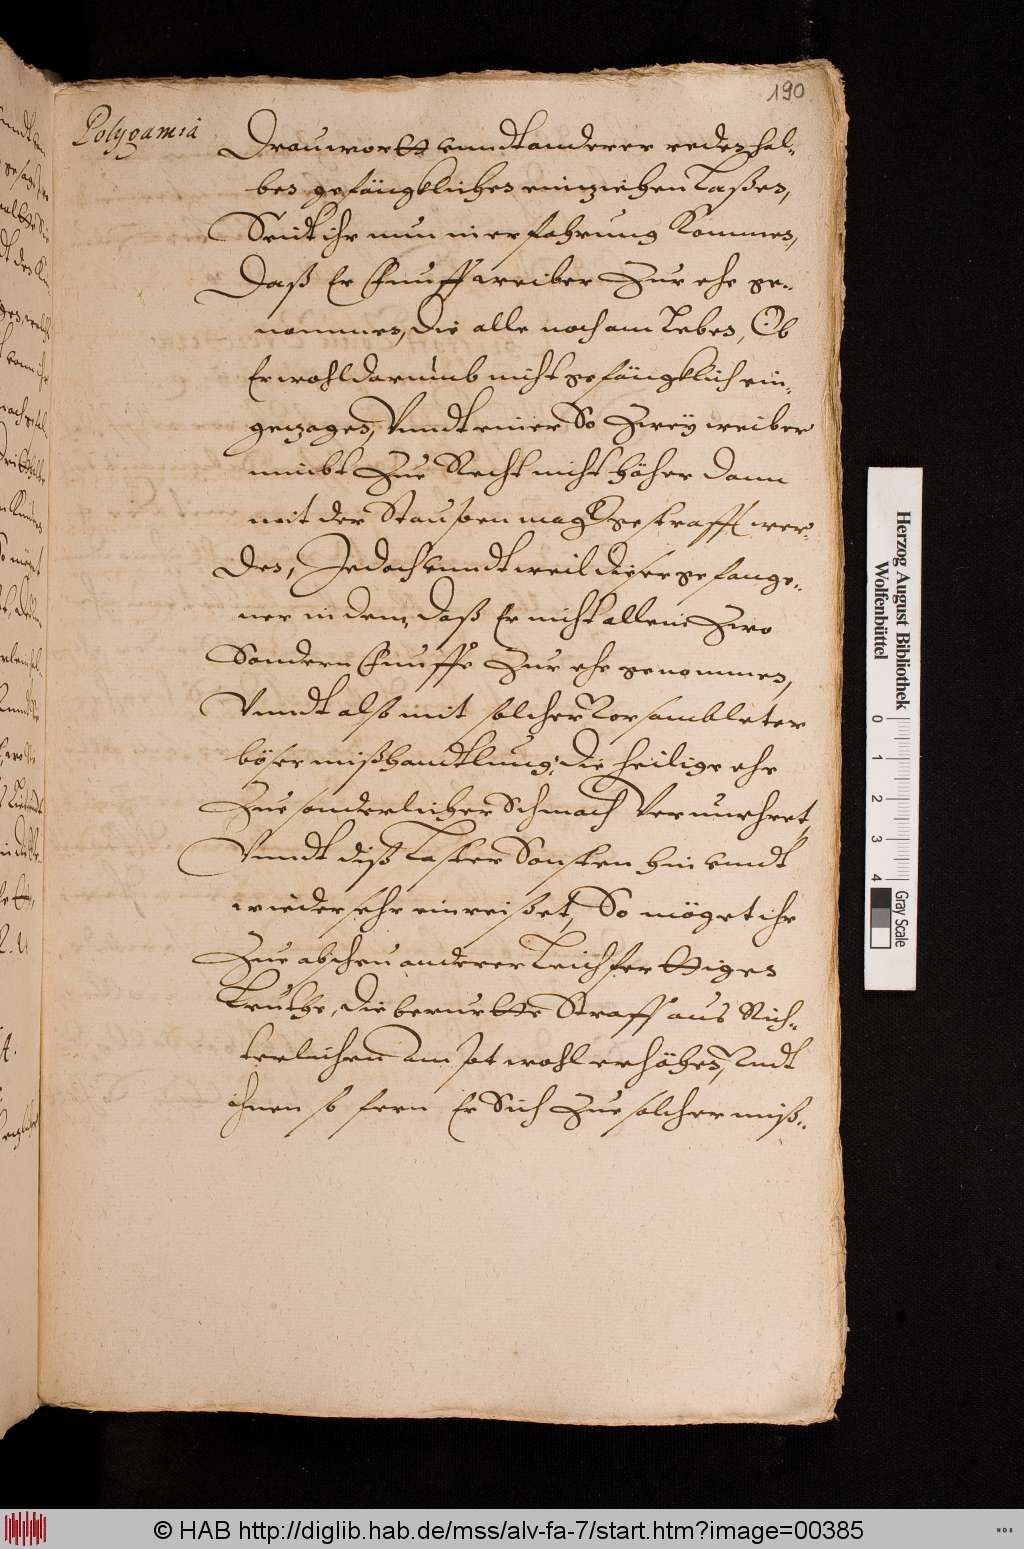 190
Polygamia
Drauwortt vnndt anderer reden hal-
ben gefängklichen einziehen laßen,
Seidt ihr nun in erfahrung kommen,
Daß Er Fünff weiber Zur ehe ge-
nommen, die alle noch am leben, Ob
Er wohl darumb nicht gefängklich ein-
gezogen, Vnndt einer So Zwey weiber
nimbt Zue Recht nicht höher dann
mit der Staupen mag gestrafft wer-
den, Jedoch vnndt weil dieser gefange-
ner in dem, daß Er nicht allein Zwo
Sondern Fünffe Zur ehe genommen,
Vnndt also mit solcher vorsambleter
böser mißhandtlung, die heilige ehe
Zue sonderlicher Schmach Verunehret,
Vnndt diß laster Sonsten hin vnndt
wieder sehr einreißet, So möget ihr
Zue abscheu anderer leichfertiges
Leuthe, die berurtte Straff aus Rich-
terlichen Ampt wohl erhöhen, Vndt
ihnen so fern Er Sich Zue solcher miß-
Herzog August Bibliothek
Wolfenbüttel
0 1 2 3 4
Gray Scale
© HAB http://diglib.hab.de/mss/alv-fa-7/start.htm?image=00385